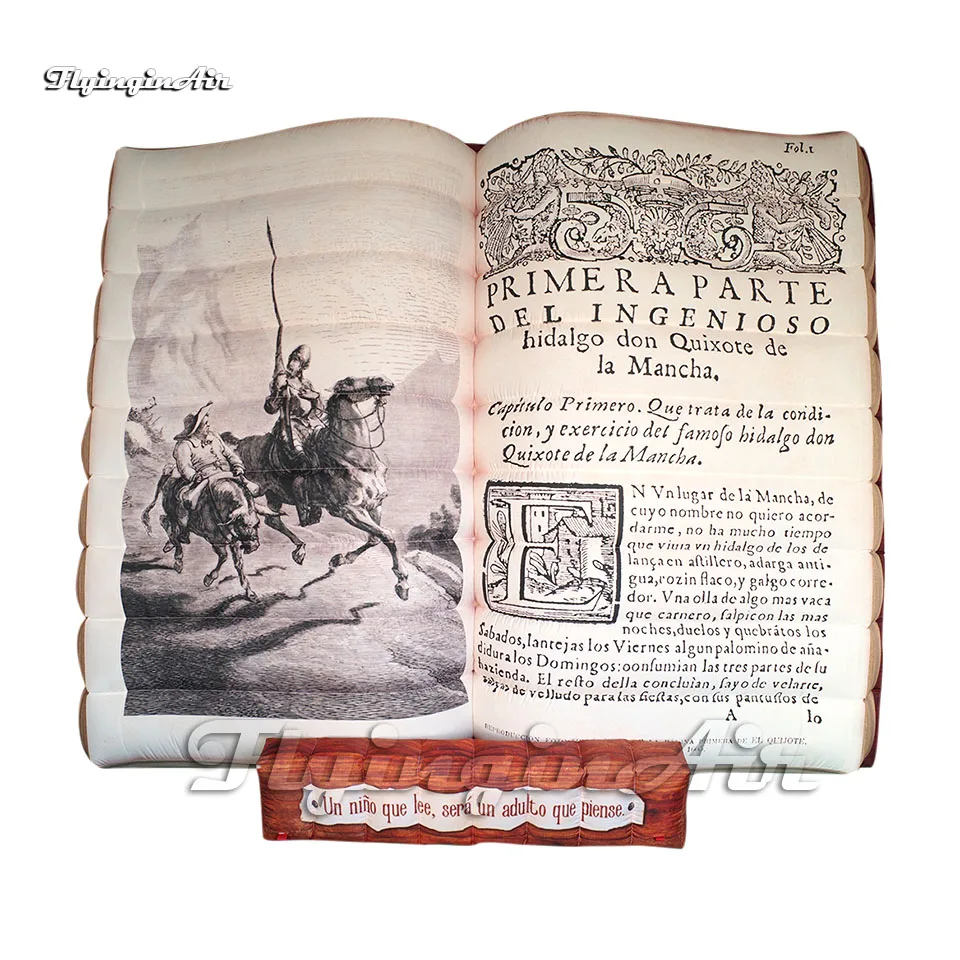 FlyinginAir
Fol.1
PRIMERA PARTE
DEL INGENIOSO
hidalgo don Quixote de
la Mancha.
Capitulo Primero. Que trata de la condi-
cion, y exercicio del famoſo hidalgo don
Quixote de la Mancha.
EN Vn lugar de la Mancha, de
cuyo nombre no quiero acor-
darme, no ha mucho tiempo
que viuia vn hidalgo de los de
lança en aſtillero, adarga anti-
gua, rozin flaco, y galgo corre-
dor. Vna olla de algo mas vaca
que carnero, ſalpicon las mas
noches, duelos y quebrãtos los
Sabados, lantejas los Viernes algun palomino de aña-
didura los Domingos: conſumian las tres partes de ſu
hazienda. El reſto della concluian, ſayo de velarte,
calças de velludo para las fieſtas, con ſus pantuflos de
A lo
REPRODUCCION PRIMERA DE EL QUIJOTE,
FlyinginAir
Un niño que lee, será un adulto que piense.